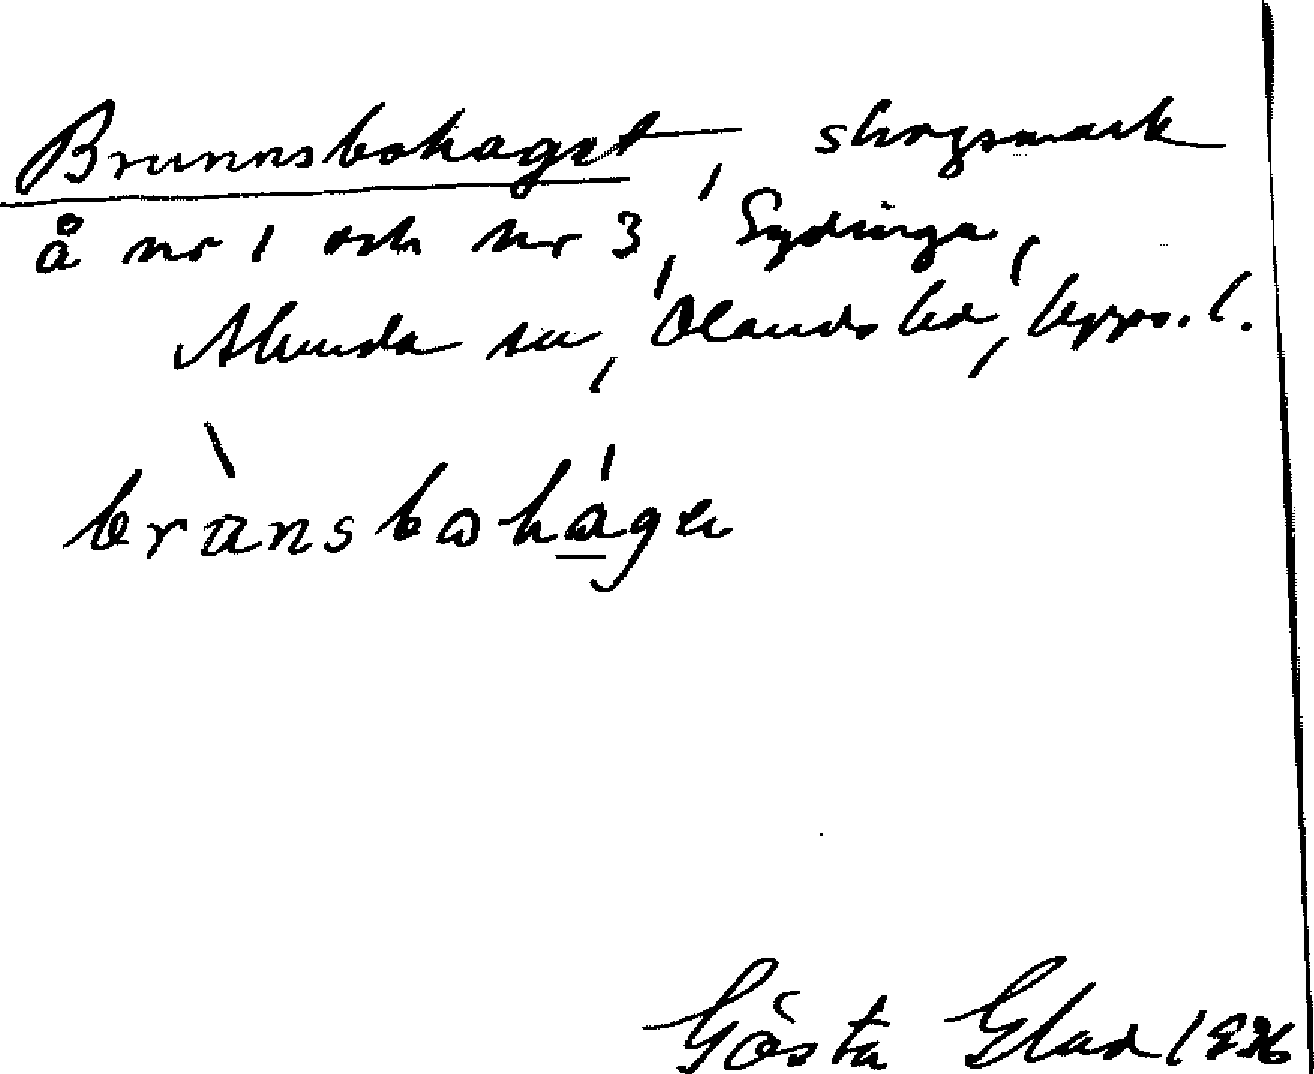 Brunnsbohaget, skogsmark
å nr 1 och nr 3, Sydinga,
Alunda sn, Olands hd, Upps. l.
brànsbohágu
Gösta Glad 1936